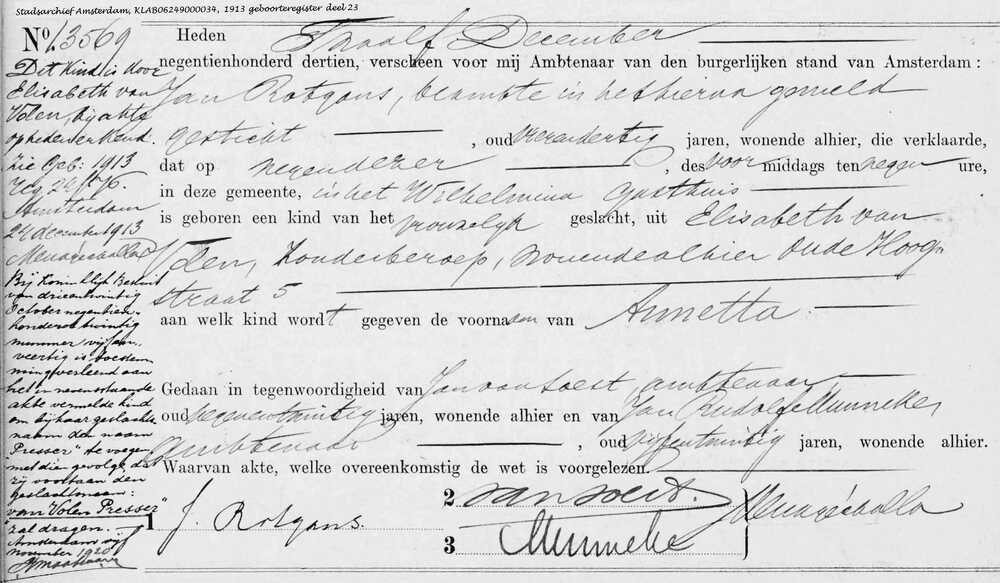 Stadsarchief Amsterdam, KLAB06249000034, 1913 geboorteregister deel 23
No 13569
Dit kind is door
Elisabeth van
Volen, bij akte
op heden erkend.
Zie Geb: 1913
Amsterdam
24 december 1913
Bij Koninklijk Besluit
van drieentwintig
October negentien-
honderd twintig
nummer vijfen-
veertig is toestem-
ming verleend aan
het in nevenstaande
akte vermelde kind
om bij haar geslachts-
naam den naam
"Presser" te voegen
met dien gevolge, dat
zij voortaan den
geslachtsnaam:
"van Volen Presser"
zal dragen.
Amsterdam vijf
november 1920
Heden Twaalf December
negentienhonderd dertien, verscheen voor mij Ambtenaar van den burgerlijken stand van Amsterdam :
Jan Rotgans, beambte in het hierna gemeld
gesticht , oud vierendertig jaren, wonende alhier, die verklaarde,
dat op negen dezer , des voor middags ten negen ure,
in deze gemeente, in het Wilhelmina Gasthuis
is geboren een kind van het vrouwelijk geslacht, uit Elisabeth van
Volen, zonder beroep, wonende alhier Oude Hoog-
straat 5
aan welk kind wordt gegeven de voornaam van Annetta
Gedaan in tegenwoordigheid van Jan van Soest, ambtenaar
oud jaren, wonende alhier en van Jan Rudolf Munneke
ambtenaar , oud vijfentwintig jaren, wonende alhier.
Waarvan akte, welke overeenkomstig de wet is voorgelezen.
1 J. Rotgans.
2 van Soest.
3 Munneke